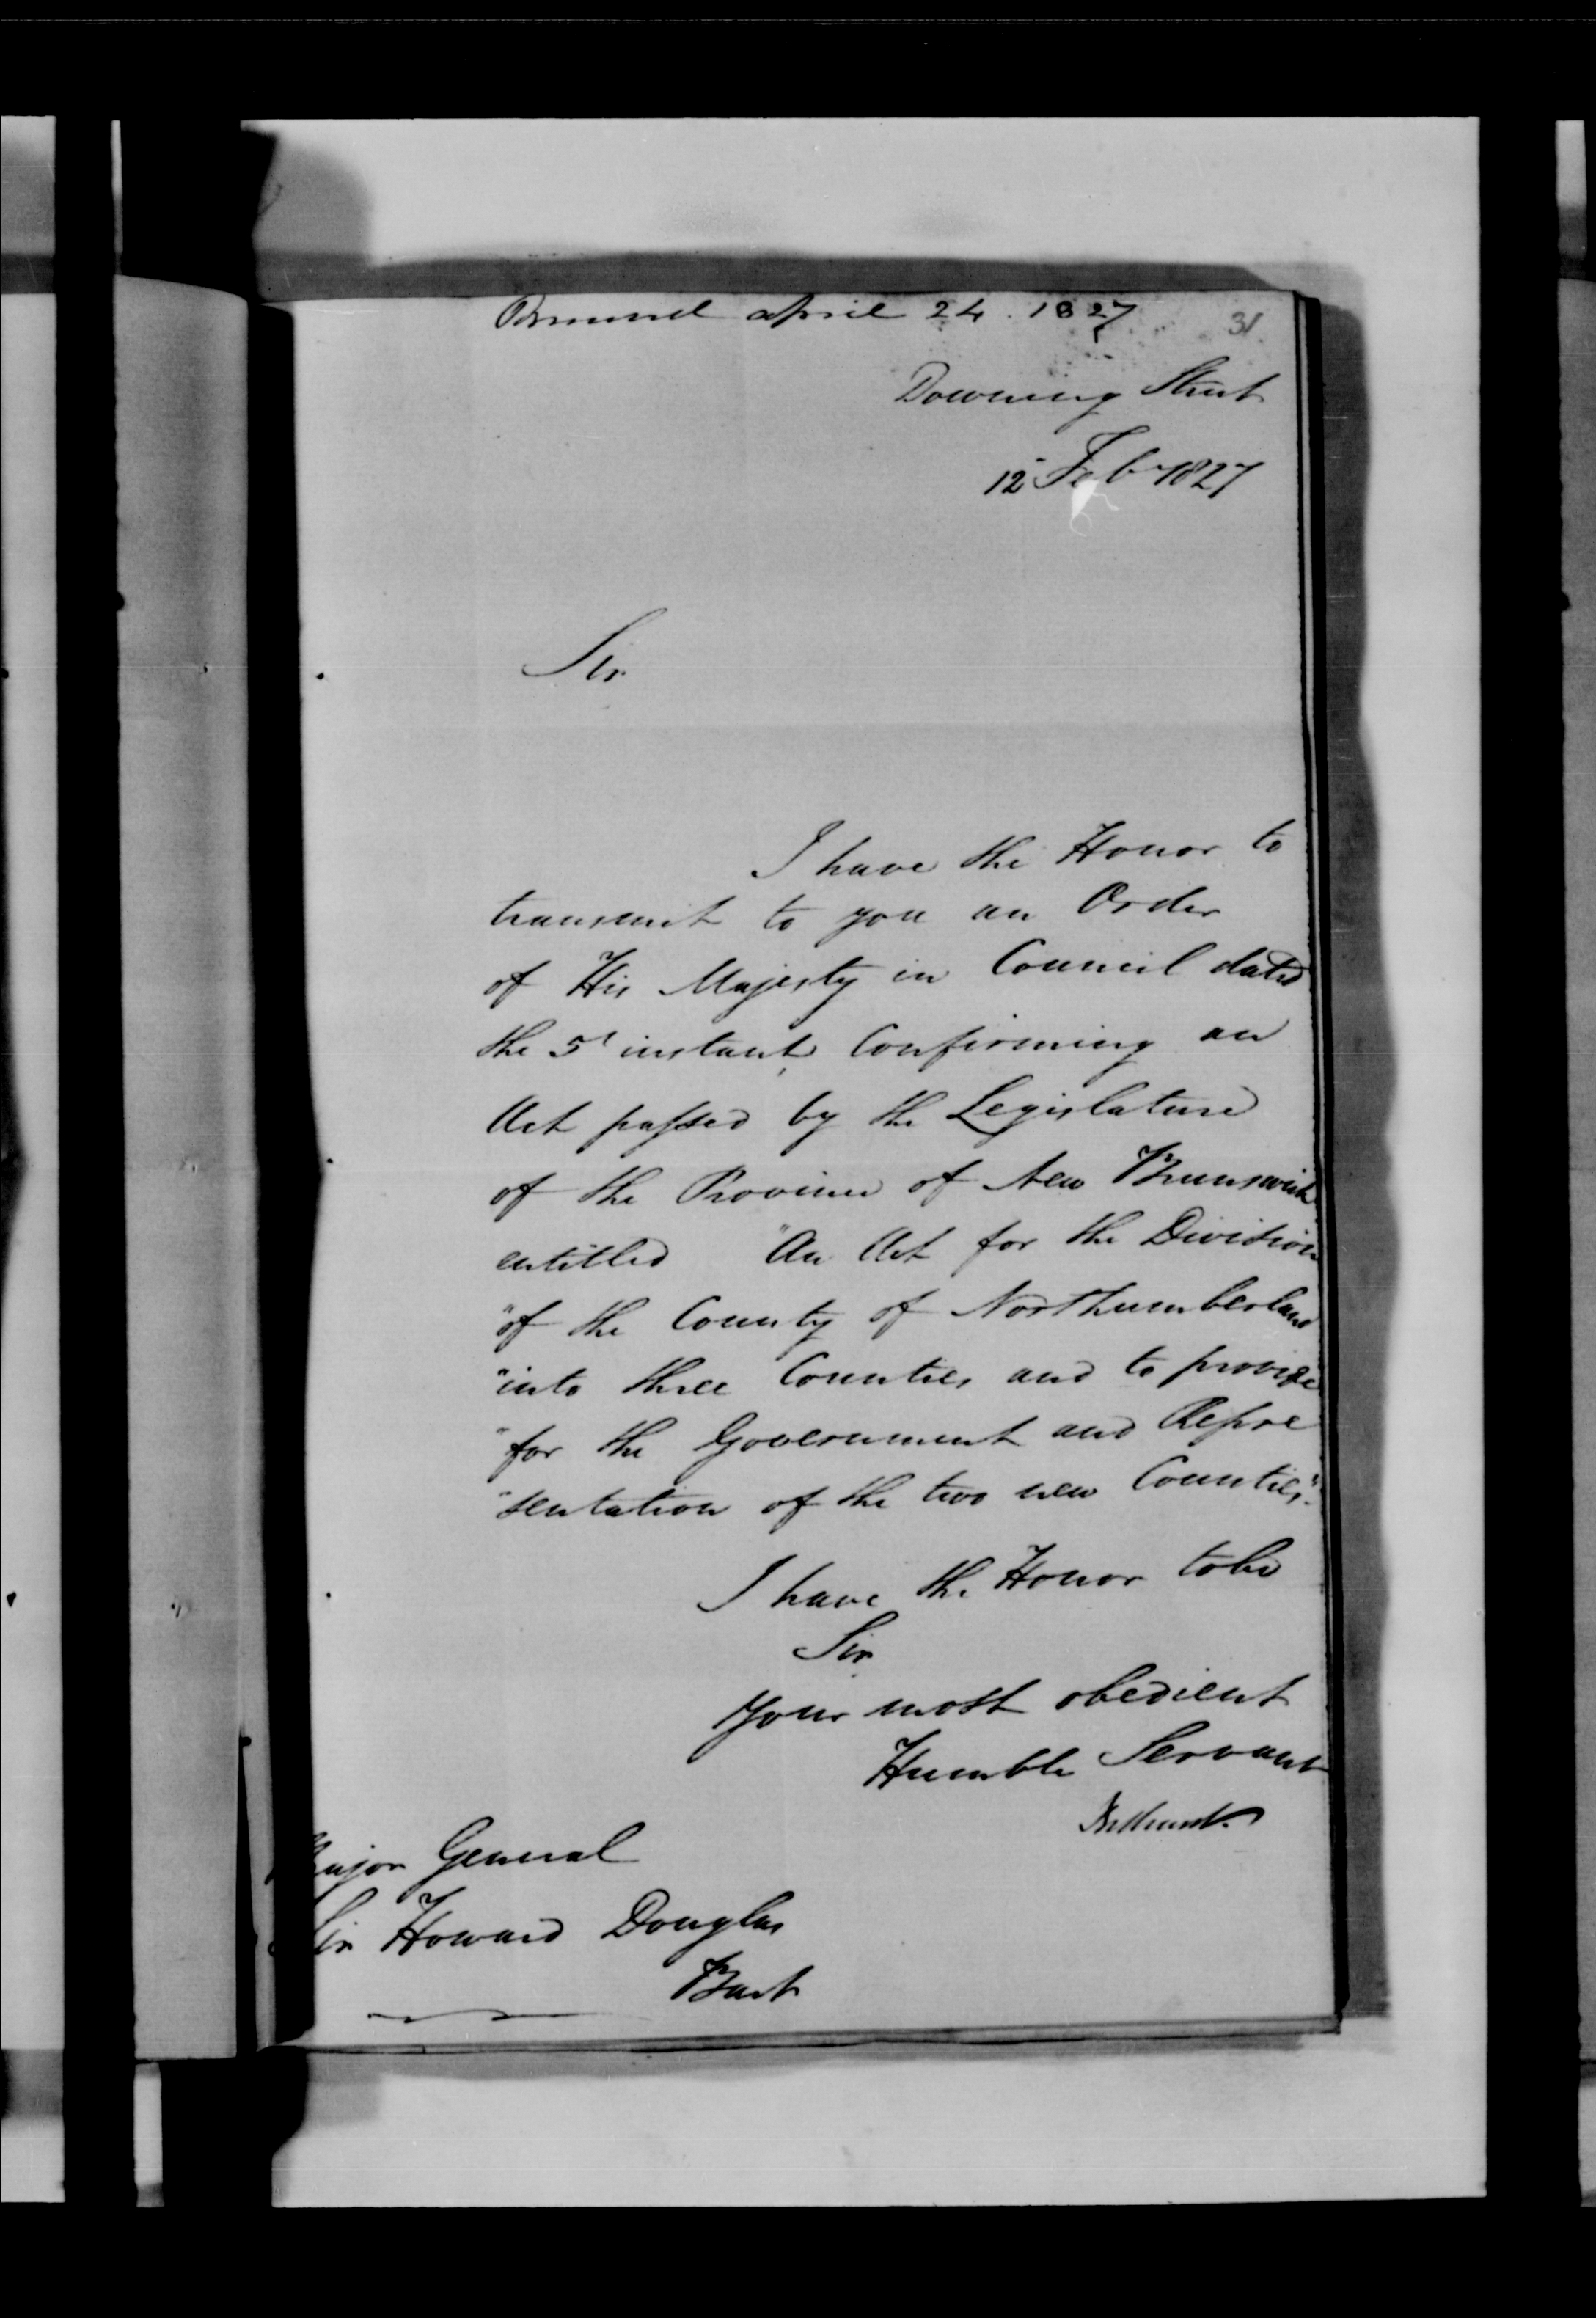 April 24. 1827
31
Downing Street
12 Feby 1827
Sir
I have the Honor to
transmit to you an Order
of His Majesty in Council dated
the 5th instant, Confirming an
Act passed by the Legislature
of the Province of New Brunswick
entitled "An Act for the Division
"of the County of Northumberland
"into three Counties, and to provide
"for the Government and Repre
"sentation of the two new Counties."
I have the Honor to be
Sir
Your most obedient
Humble Servant
Bathurst.
Major General
Sir Howard Douglas
Bart